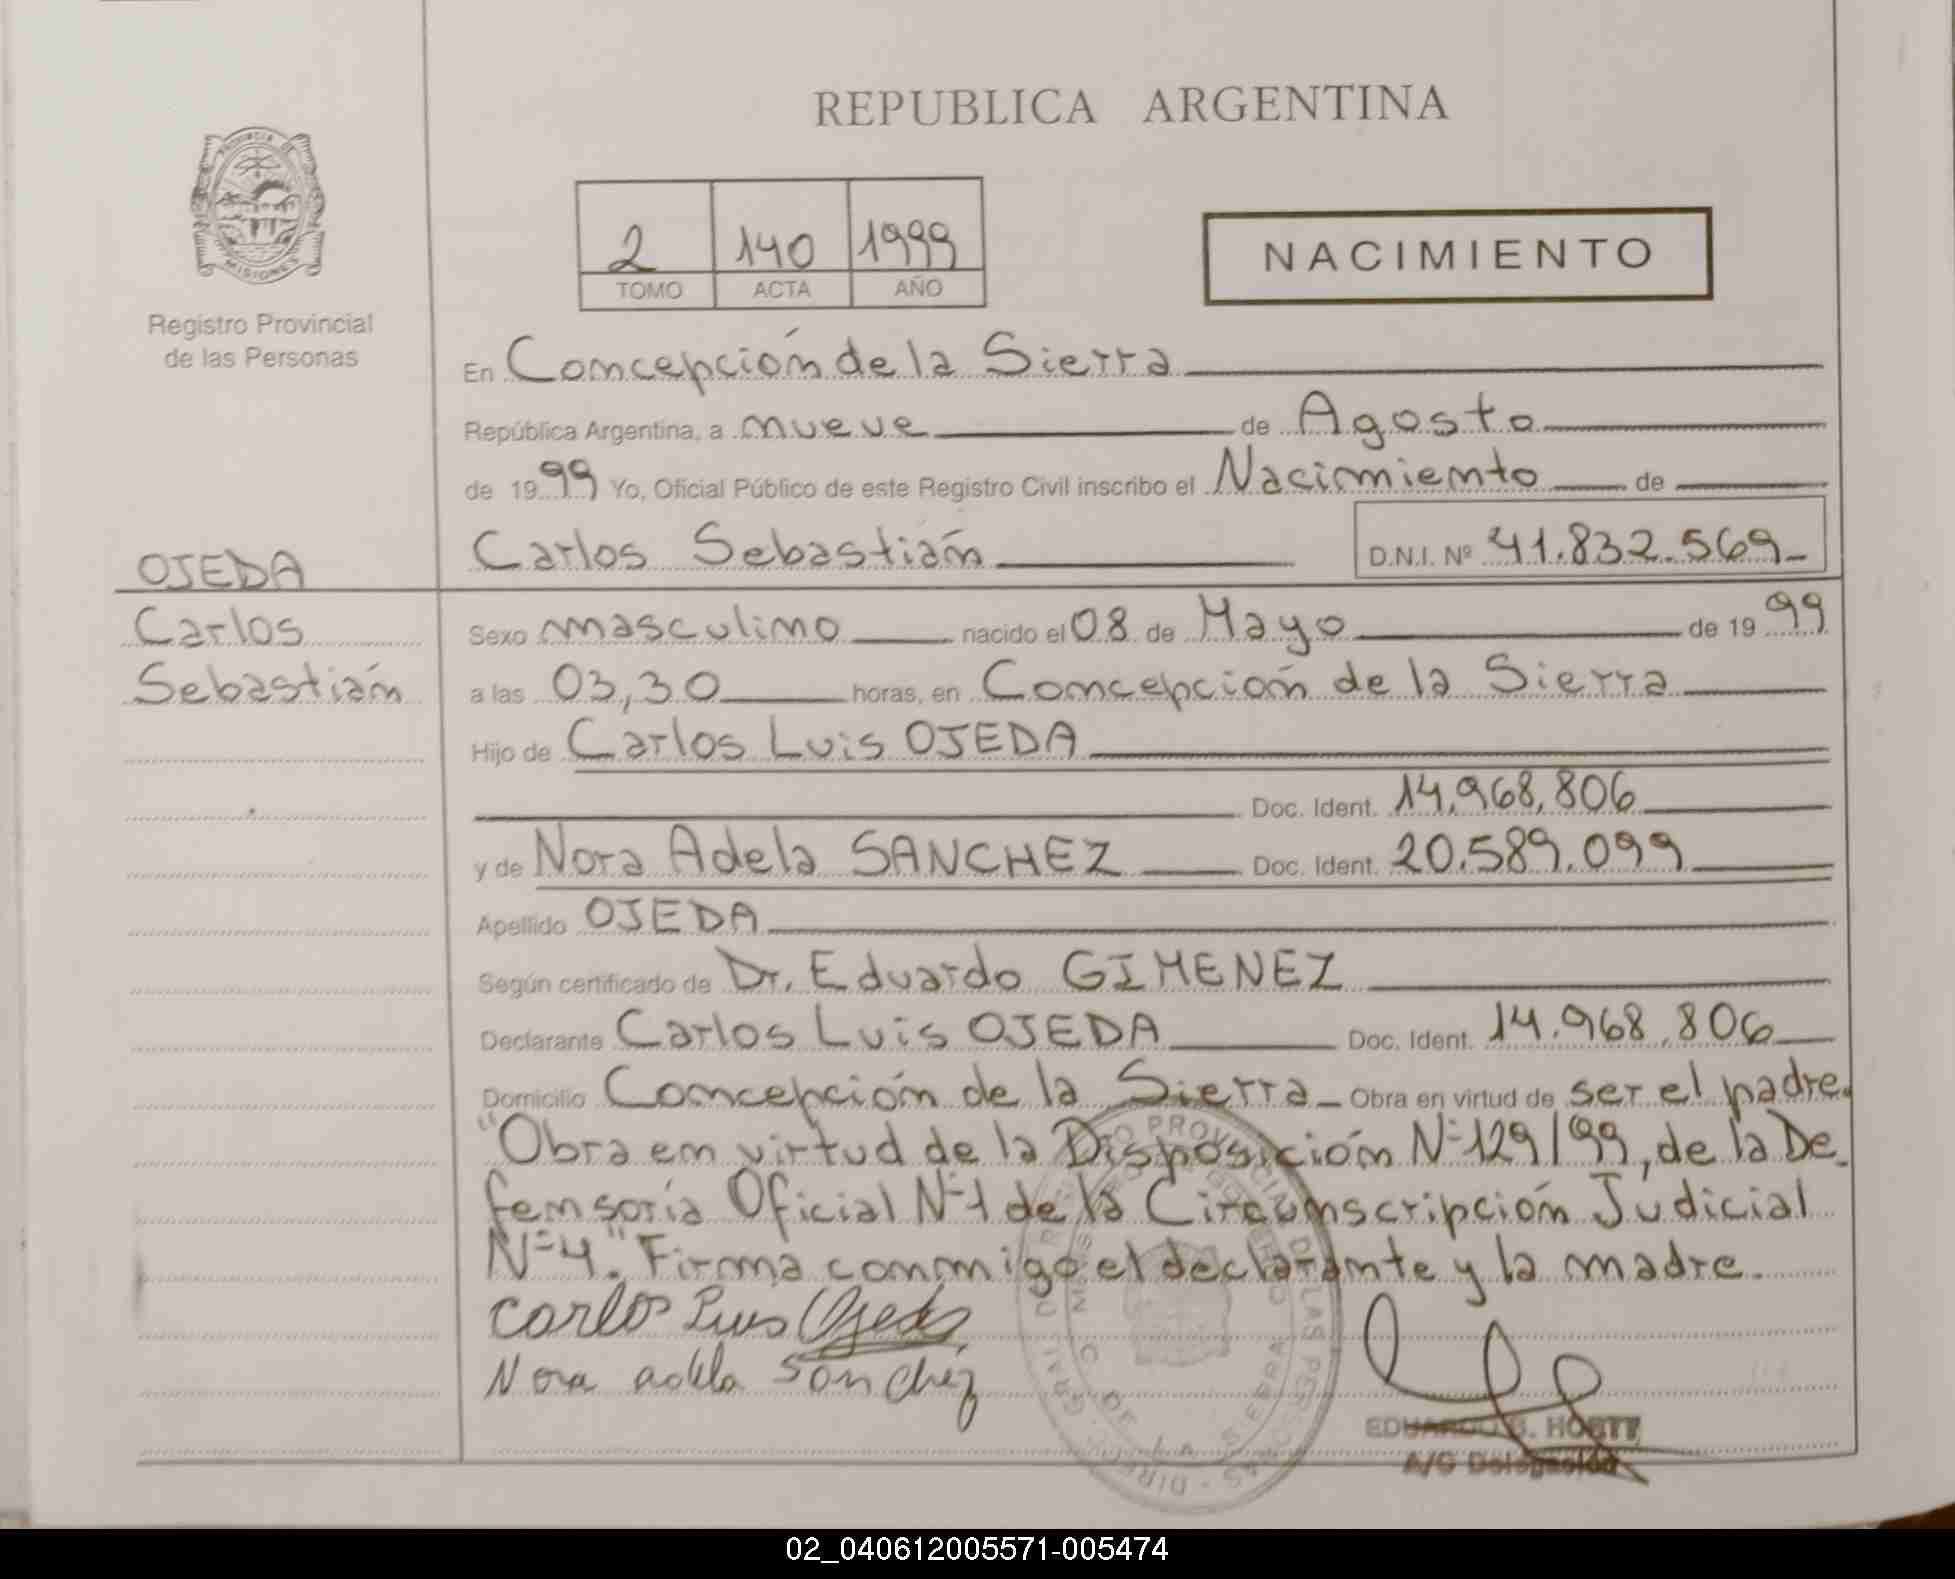 REPUBLICA ARGENTINA
PROVINCIA DE MISIONES
Registro Provincial
de las Personas
2 140 1999
TOMO ACTA AÑO
NACIMIENTO
En Concepción de la Sierra
República Argentina, a nueve de Agosto
de 1999 Yo, Oficial Público de este Registro Civil inscribo el Nacimiento de
Carlos Sebastián D.N.I. Nº 41.832.569
OJEDA
Carlos
Sebastián
Sexo masculino nacido el 08 de Mayo de 1999
a las 03,30 horas, en Concepción de la Sierra
Hijo de Carlos Luis OJEDA
Doc. Ident. 14.968.806
y de Nora Adela SANCHEZ Doc. Ident. 20.589.099
Apellido OJEDA
Según certificado de Dr. Eduardo GIMENEZ
Declarante Carlos Luis OJEDA Doc. Ident. 14.968.806
Domicilio Concepción de la Sierra Obra en virtud de ser el padre.
"Obra en virtud de la Disposición Nº 129/99, de la De-
fensoría Oficial Nº 1 de la Circunscripción Judicial
Nº 4." Firma conmigo el declarante y la madre.
Carlos Luis Ojeda
Nora adela Sanchez
EDUARDO
A/C Delegación
02_040612005571-005474